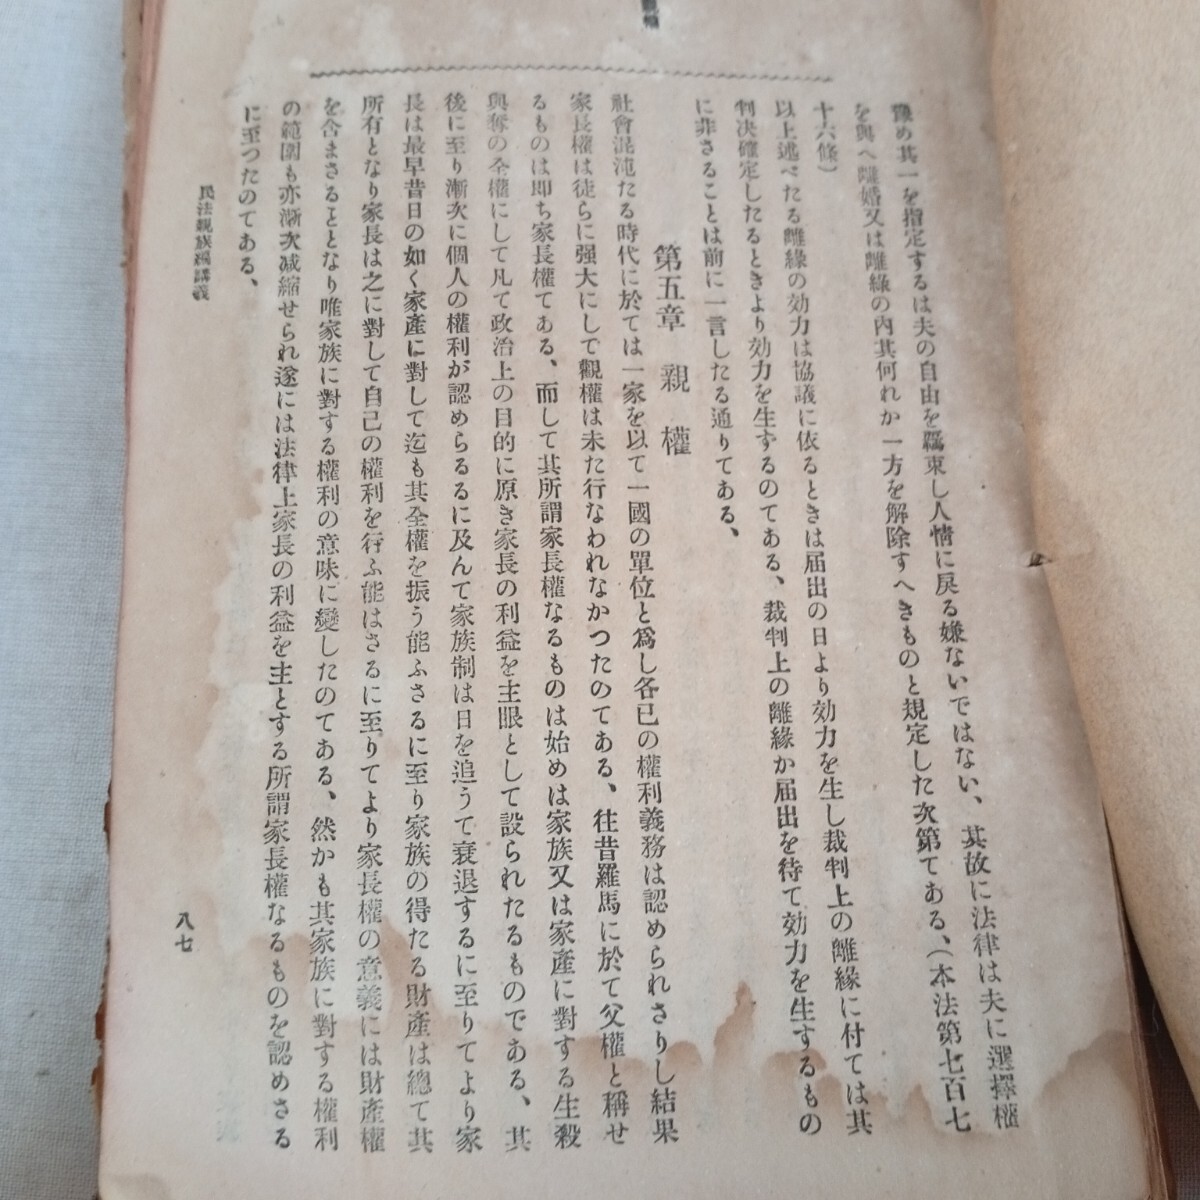 豫め其一を指定するは夫の自由を羈束し人情に戻る嫌ないではない、其故に法律は夫に選擇權
を與へ離婚又は離緣の內其何れか一方を解除すへきものと規定した次第てある、(本法第七百七
十六條)
以上述べたる離緣の効力は協議に依るときは届出の日より効力を生し裁判上の離緣に付ては其
判決確定したるときより効力を生ずるのてある、裁判上の離緣か届出を待て効力を生するもの
に非さることは前に一言したる通りてある、
第五章 親權
社會混沌たる時代に於ては一家を以て一國の單位と爲し各已の權利義務は認められさりし結果
家長權は徒らに强大にして觀權は未た行なわれなかつたのてある、往昔羅馬に於て父權と稱せ
るものは即ち家長權てある、而して其所謂家長權なるものは始めは家族又は家產に對する生殺
與奪の全權にして凡て政治上の目的に原き家長の利益を主眼として設られたるものである、其
後に至り漸次に個人の權利が認めらるるに及んて家族制は日を追うて衰退するに至りてより家
長は最早昔日の如く家產に對して迄も其全權を振う能ふさるに至り家族の得たる財產は總て其
所有となり家長は之に對して自己の權利を行ふ能はさるに至りてより家長權の意義には財產權
を含まさることとなり唯家族に對する權利の意味に變したのてある、然かも其家族に對する權利
の範圍も亦漸次减縮せられ遂には法律上家長の利益を主とする所謂家長權なるものを認めさる
に至つたのてある、
民法親族編講義
八七